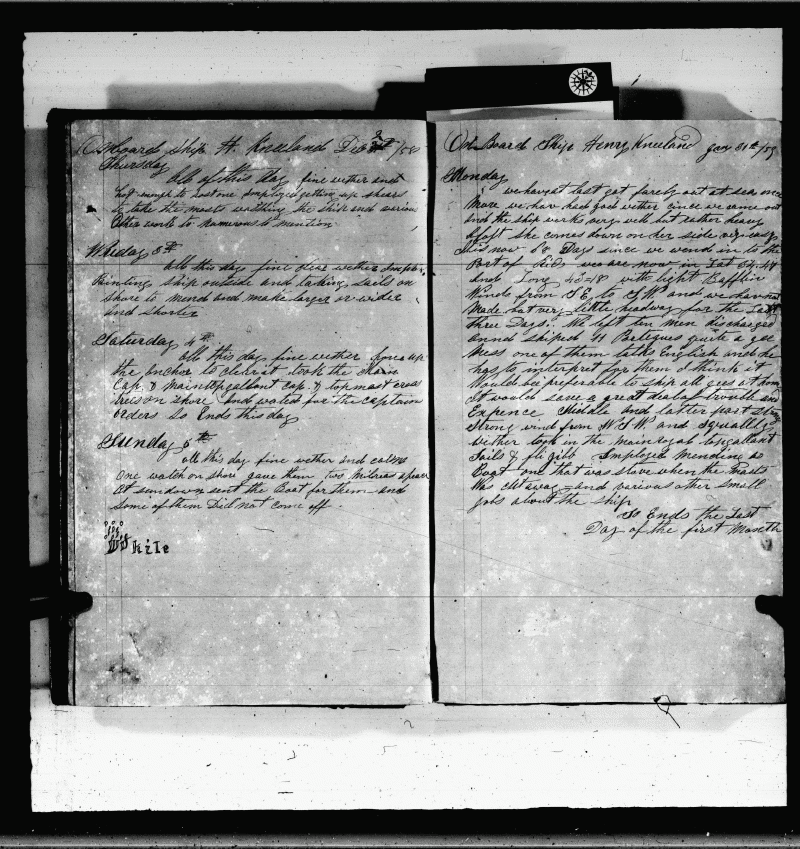 Onboard Ship H. Kneeland Dec 2nd /58
Thursday
All of this day fine wether and
hot enough to Employed getting up shears
to take the masts washing the ship and various
Other work to numerous to mention
Friday 3d
all this day fine clear wether Employ
Painting ship outside and taking sails on
shore to mend and make larger or wider
and shorter
Saturday 4th
all this day fine wether hove up
the anchor to clear it took the
Cap & Main topgallant cap & topmast cross
trees on shore and waited for the captain
orders So Ends this day
Sunday 5th
all this day fine wether and calm
One watch on shore gave them two Milrais apiece
At sundown sent the Boat for them and
some of them Did not come off.
jjj
Wd Kile
On Board Ship Henry Kneeland Jan 31st /59
Monday
we have at last got farely out at sea once
More we have had good wether cince we came out
And the ship works very well but rather heavy
Aloft She comes down on her side very easy
It is now 58 Days since we wend in to the
Port of Rio we are now in Lat 34.48
And Long 43-48 with light Baffling
Winds from SE to SW and we have not
Made but very little headway for the Last
three Days. We left ten men discharged
annd shiped 11 Portegues quite a gee
Mess one of them talks English and he
has to interpret for them I think it
Would be preferable to ship all gees at home
It would save a great deal of trouble and
Expence Middle and latter part
Strong wind from WSW and squally
wether took in the main royal topgallant
Sails & fli gibb Employed Mending a
Boat one that was stove when the Masts
Was cut away and parious other small
jobs about the ship
So Ends the Last
Day of the first Moneth